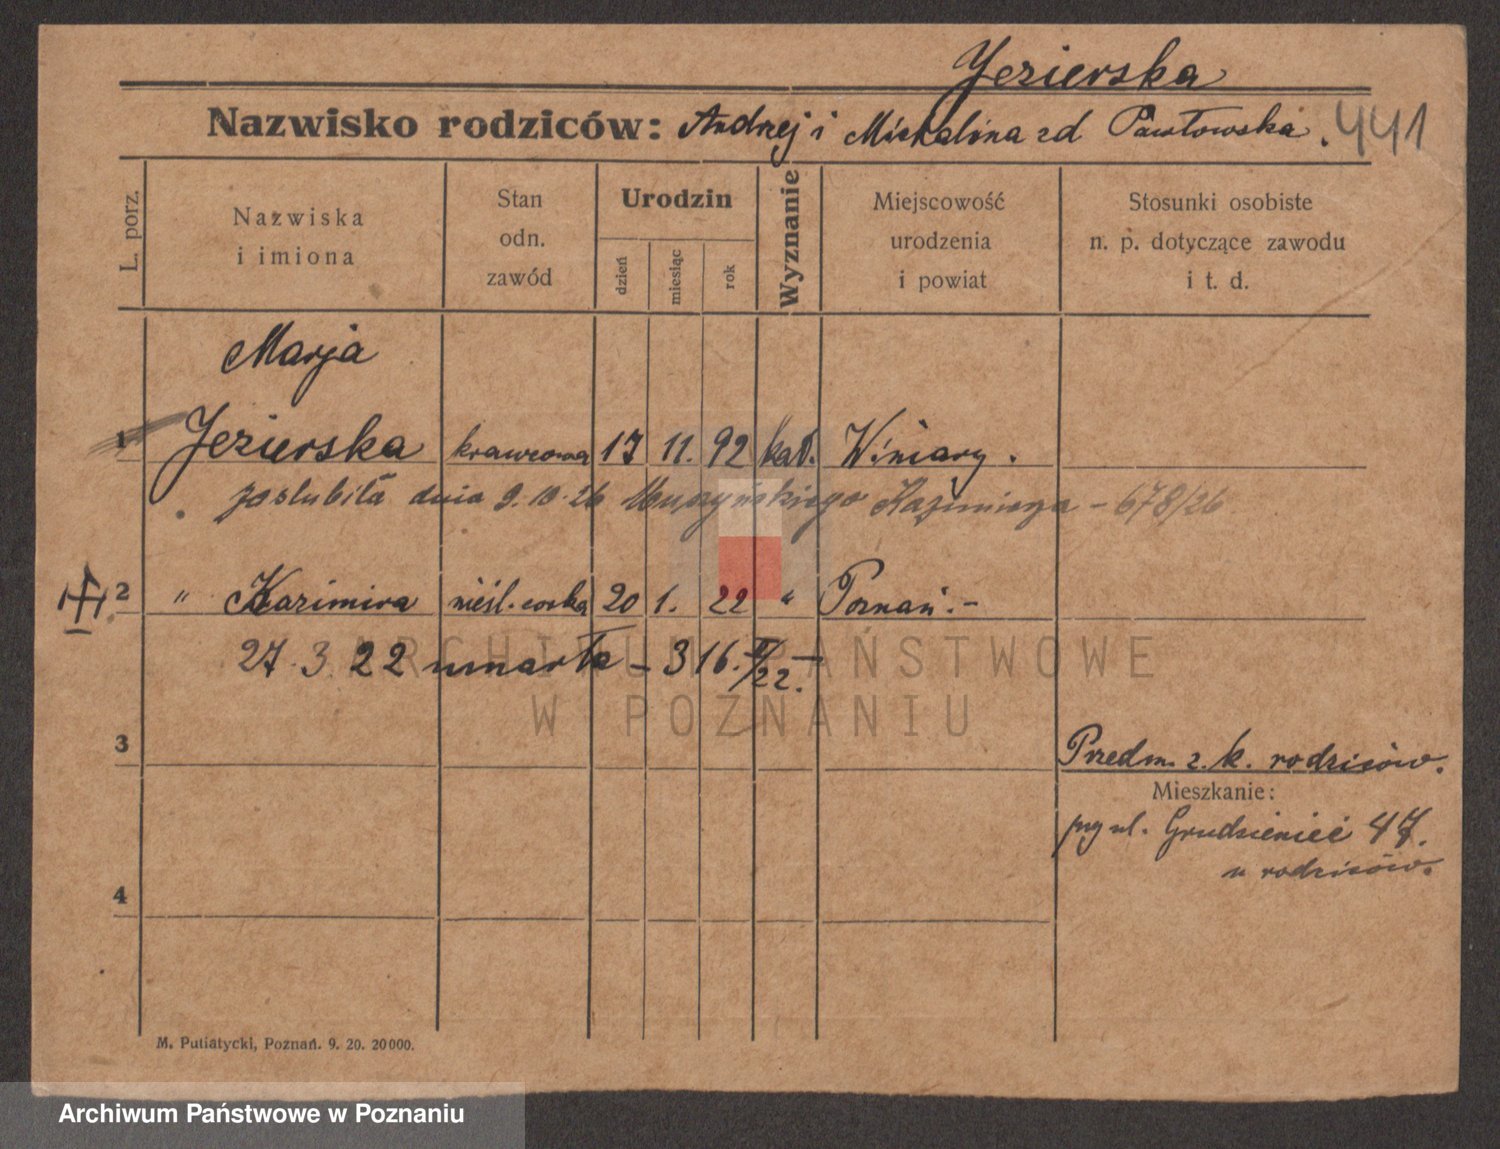 Jezierska
Nazwisko rodziców: Andrzej i Michalina zd Pawłowska. 441
L. porz.
Nazwiska
i imiona
Stan
odn.
zawód
Urodzin
dzień
miesiąc
rok
Wyznanie
Miejscowość
urodzenia
i powiat
Stosunki osobiste
n. p. dotyczące zawodu
i t. d.
Marja
1 Jezierska krawcowa 17 11. 92 kat. Winiary.
zaślubiła dnia 9.10.26 Muszyńskiego Kazimierza - 678/26
2 " Kazimira nieśl. córka 20 1. 22 " Poznań.-
27.3.22 umarła - 316.-II/22.-
ARCHIWUM PAŃSTWOWE
W POZNANIU
3
Przedm. z. k. rodziców.
Mieszkanie:
przy ul. Grudzieniec 47.
u rodziców.
4
M. Putiatycki, Poznań. 9. 20. 20000.
Archiwum Państwowe w Poznaniu